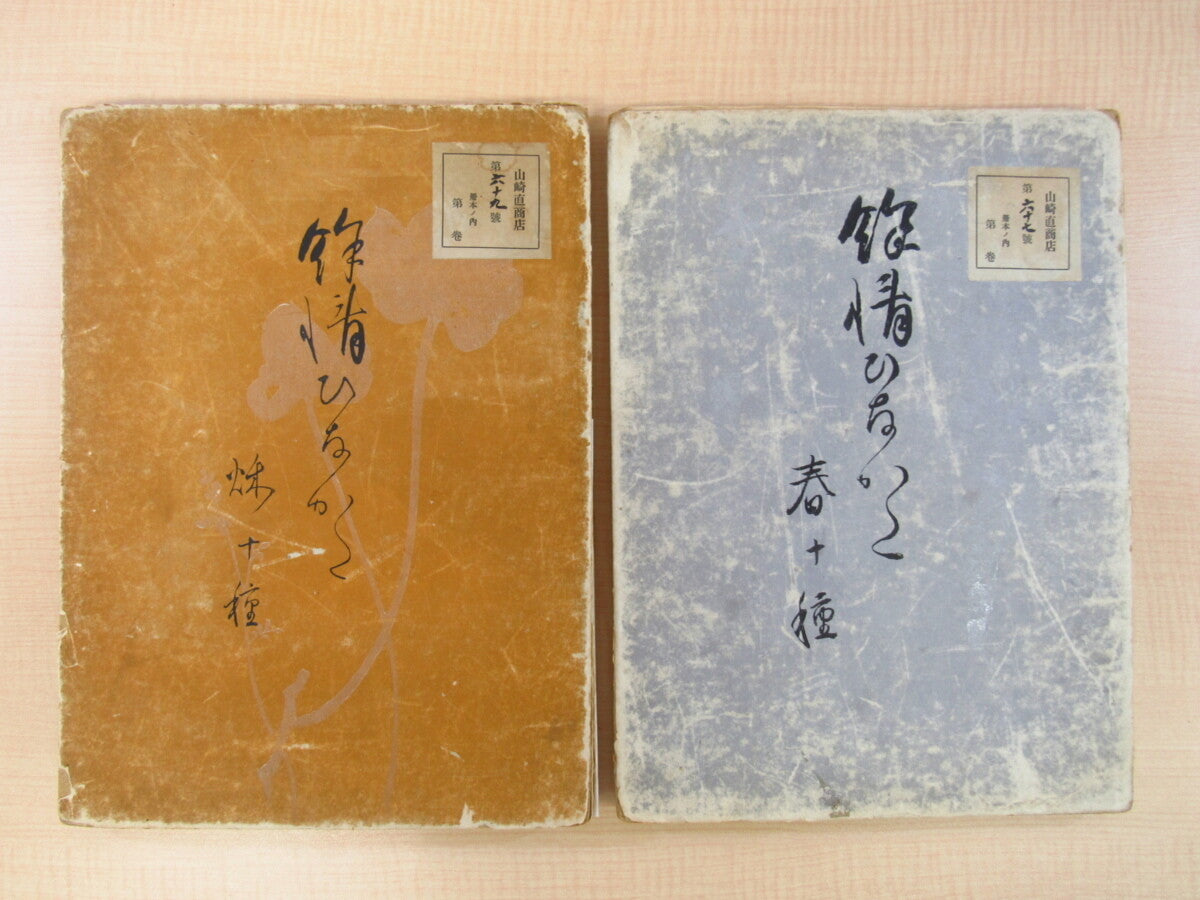 山崎直商店
第六十九號
冊本ノ内
第 卷
餘情ひなかた
秌十種
山崎直商店
第六十七號
冊本ノ内
第 卷
餘情ひなかた
春十種